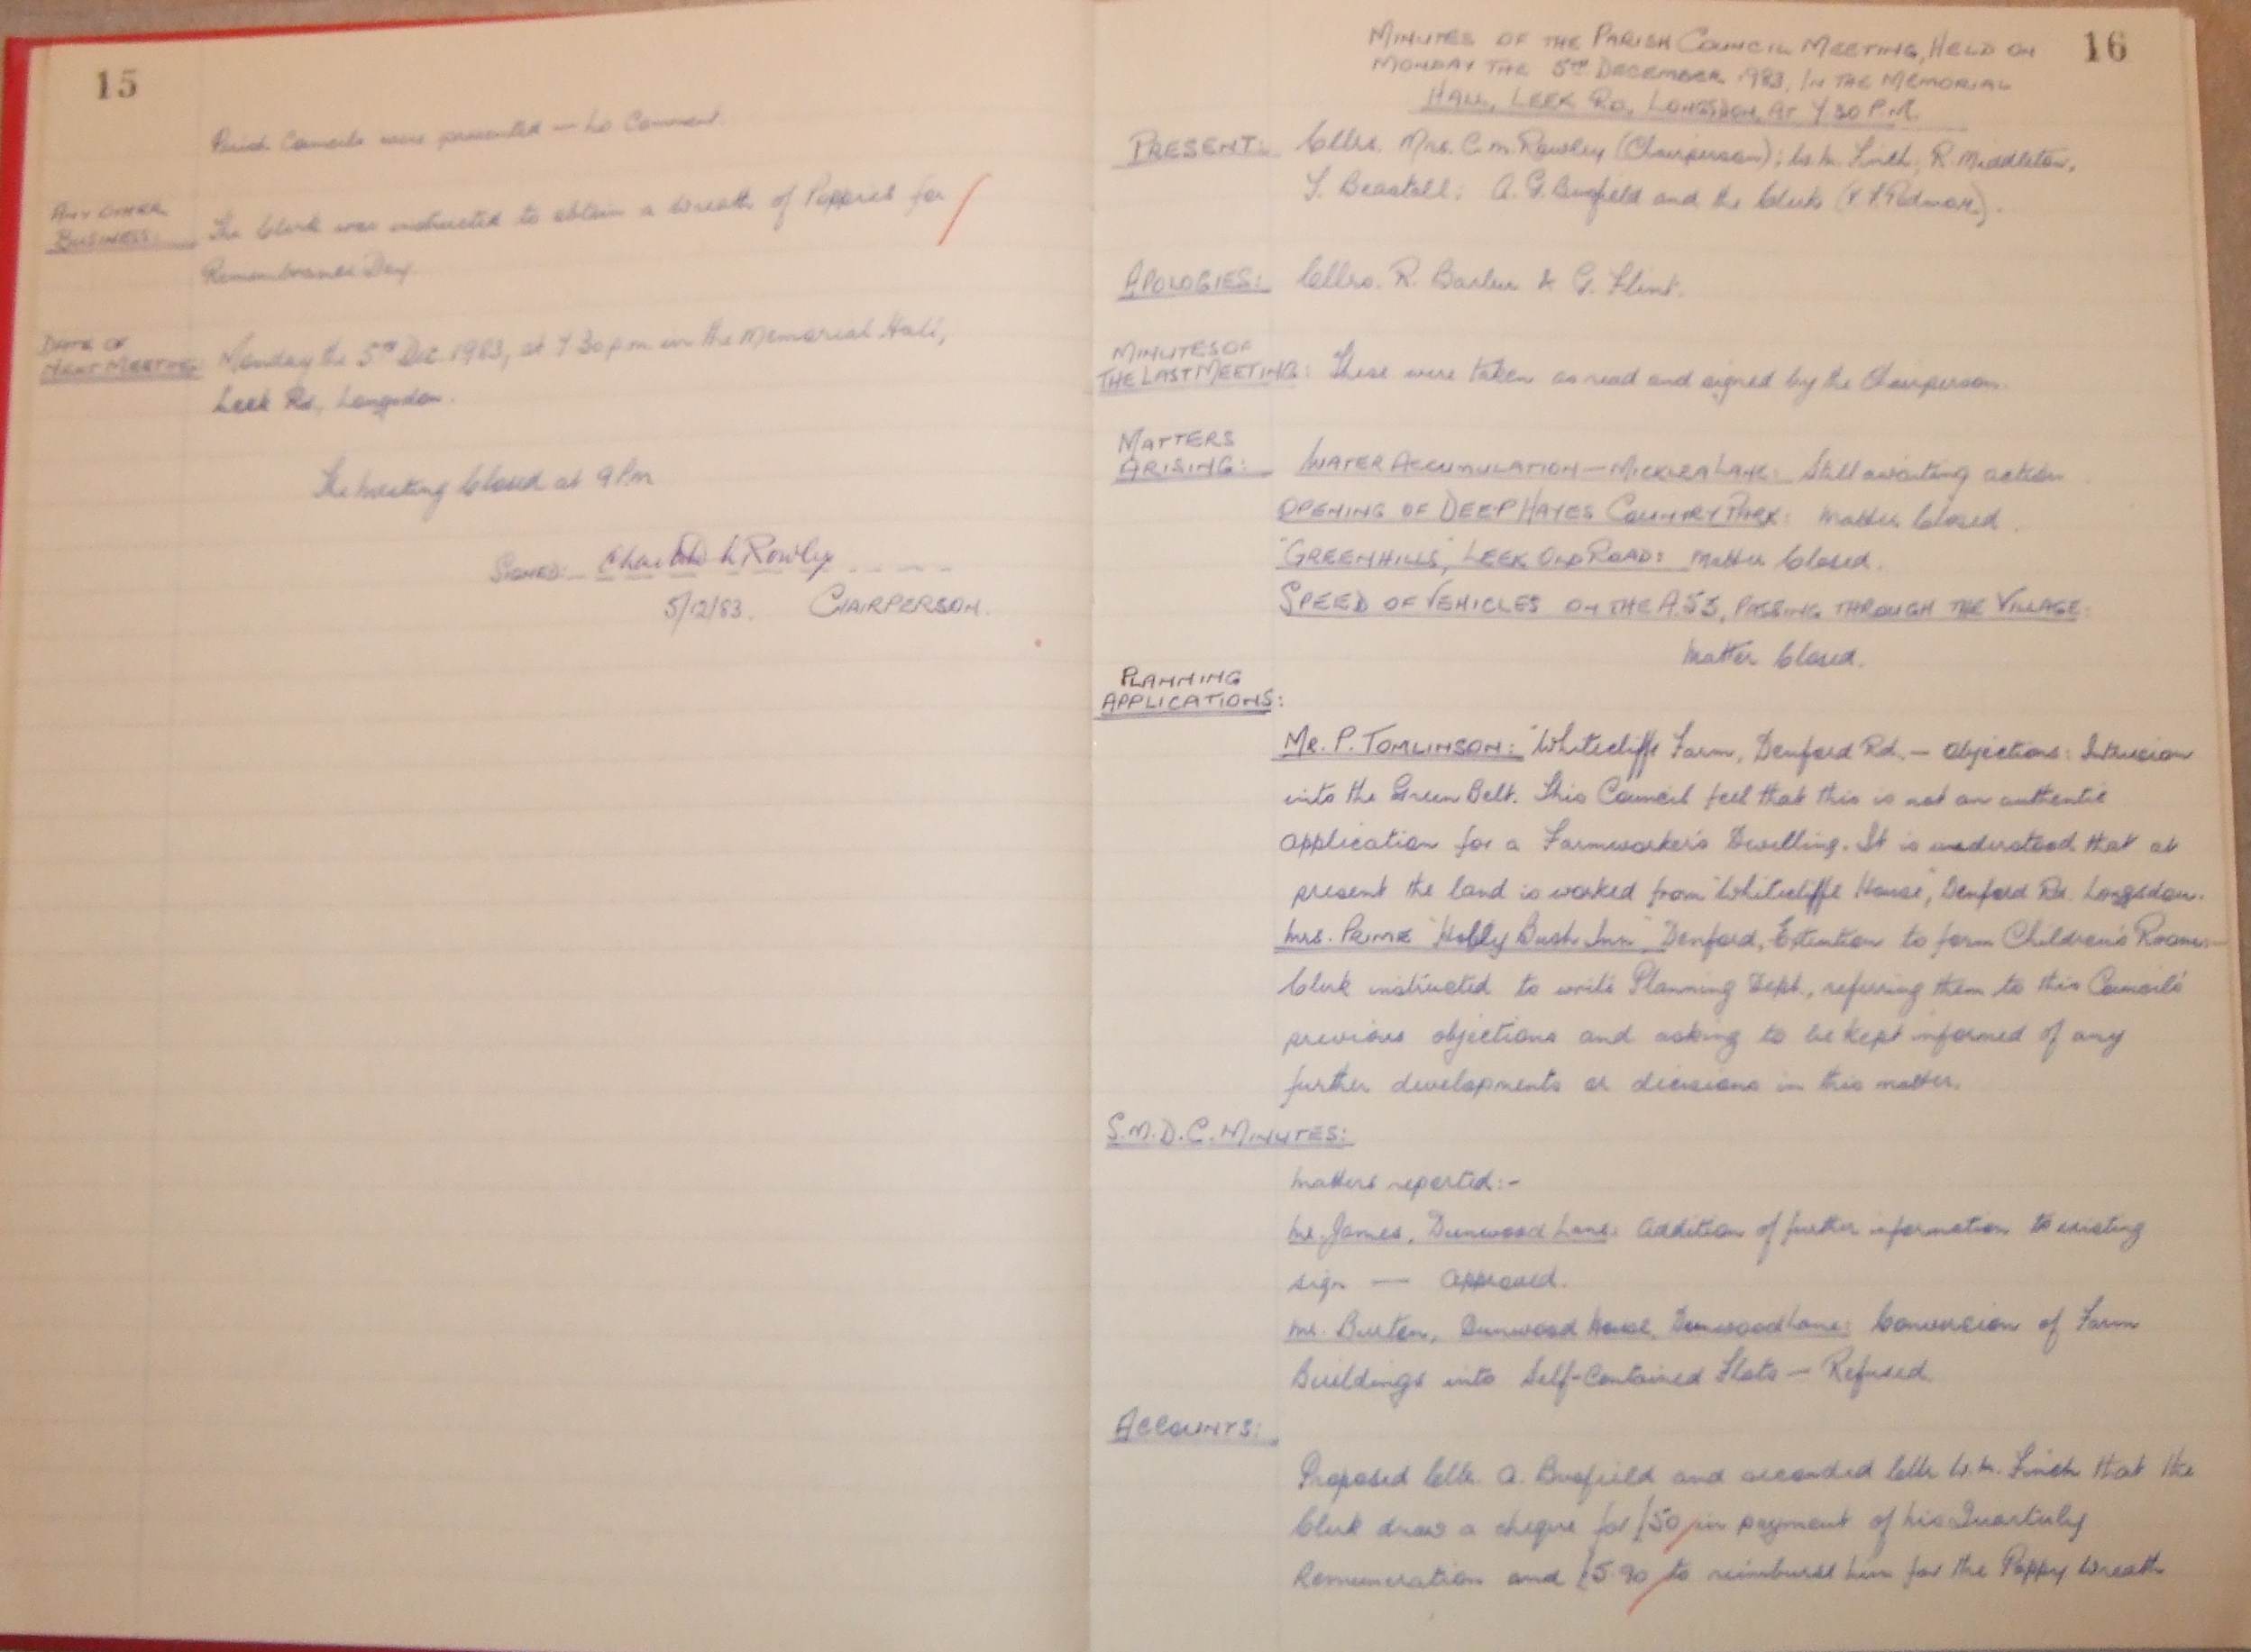 15
Parish Councils were presented — No Comment.
ANY OTHER
BUSINESS:
The Clerk was instructed to obtain a Wreath of Poppies for
Remembrance Day.
DATE OF
NEXT MEETING:
Monday the 5TH Dec. 1983, at 7 30 p m in the Memorial Hall,
Leek Rd, Longsdon.
The Meeting Closed at 9 Pm
SIGNED:
Rowley
5/12/83. CHAIRPERSON.
16
MINUTES OF THE PARISH COUNCIL MEETING, HELD ON
MONDAY THE 5TH DECEMBER 1983, IN THE MEMORIAL
HALL, LEEK RD, LONGSDON, AT 7 30 P.M.
PRESENT: Cllrs. Mrs. C. M. Rowley (Chairperson); W. H. Finch; R. Middleton,
Beastall; A. G. Busfield and the Clerk
APOLOGIES: Cllrs. R. Barber & G. Flint.
MINUTES OF
THE LAST MEETING: These were taken as read and signed by the Chairperson.
MATTERS
ARISING: WATER ACCUMULATION — MICKLEA LANE: Still awaiting action.
OPENING OF DEEP HAYES COUNTRY PARK: Matter Closed.
"GREENHILLS", LEEK OLD ROAD: Matter Closed.
SPEED OF VEHICLES ON THE A.53, PASSING THROUGH THE VILLAGE:
Matter Closed.
PLANNING
APPLICATIONS:
MR. P. TOMLINSON: "Whitecliffe Farm, Denford Rd. — Objections: Intrusion
into the Green Belt. This Council feel that this is not an authentic
application for a Farmworker's Dwelling. It is understood that at
present the land is worked from "Whitecliffe House", Denford Rd. Longsdon.
MRS. PRIME "Holly Bush Inn" Denford, Extention to form Children's Room:—
Clerk instructed to write Planning Dept., refering them to this Council's
previous objections and asking to be kept informed of any
further developments or decisions in this matter.
S.M.D.C. MINUTES:
Matters reported:-
Mr. James, Dunwood Lane: Addition of further information to existing
sign — Approved.
Mr. Burton, Dunwood House, Dunwood Lane: Conversion of Farm
Buildings into Self-Contained Flats — Refused.
ACCOUNTS:
Proposed Cllr. A. Busfield and seconded Cllr W. H. Finch that the
Clerk draw a cheque for £50 in payment of his Quarterly
Remuneration and £5.90 to reimburse him for the Poppy Wreath